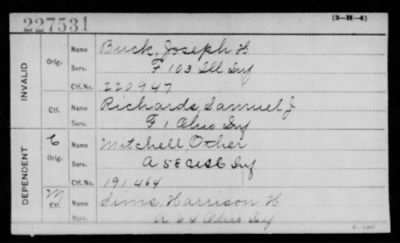 227531
(3-H-4)
INVALID
Orig.
Name Buck, Joseph H
Serv. F 103 Ill Inf
Ctf. No. 220947
Ctf.
Name Richards, Samuel J
Serv. F 1 Ohio Inf
DEPENDENT
C
Orig.
Name Mitchell, Other
Serv. A 58 Inf
Ctf. No. 191464
M
Ctf.
Name Sims, Harrison H
Serv. A 64 Ohio Inf